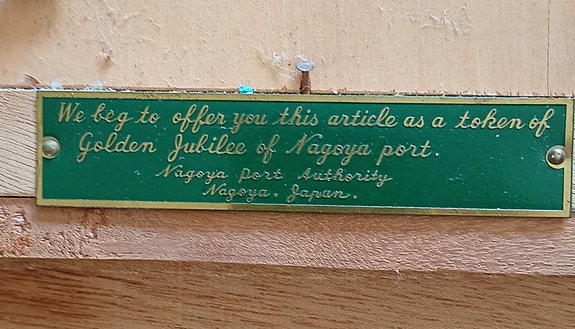 We beg to offer you this article as a token of
Golden Jubilee of Nagoya port.
Nagoya Port Authority
Nagoya. Japan.